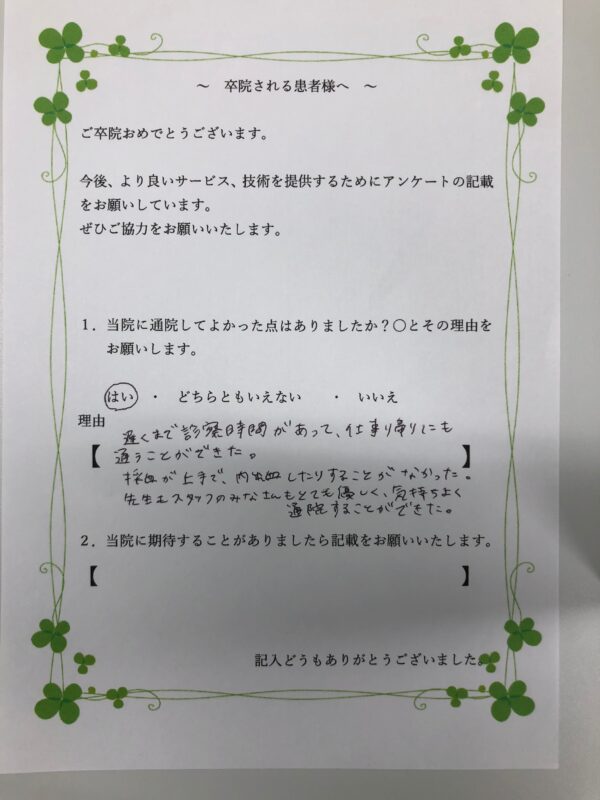 ～　卒院される患者様へ　～
ご卒院おめでとうございます。
今後、より良いサービス、技術を提供するためにアンケートの記載
をお願いしています。
ぜひご協力をお願いいたします。
１．当院に通院してよかった点はありましたか？〇とその理由を
お願いします。
はい　・　どちらともいえない　　・　いいえ
理由
遅くまで診察時間があって、仕事帰りにも
【通うことができた。】
採血が上手で、内出血したりすることがなかった。
先生もスタッフのみなさんもとても優しく、気持ちよく
通院することができた。
２．当院に期待することがありましたら記載をお願いいたします。
【　】
記入どうもありがとうございました。